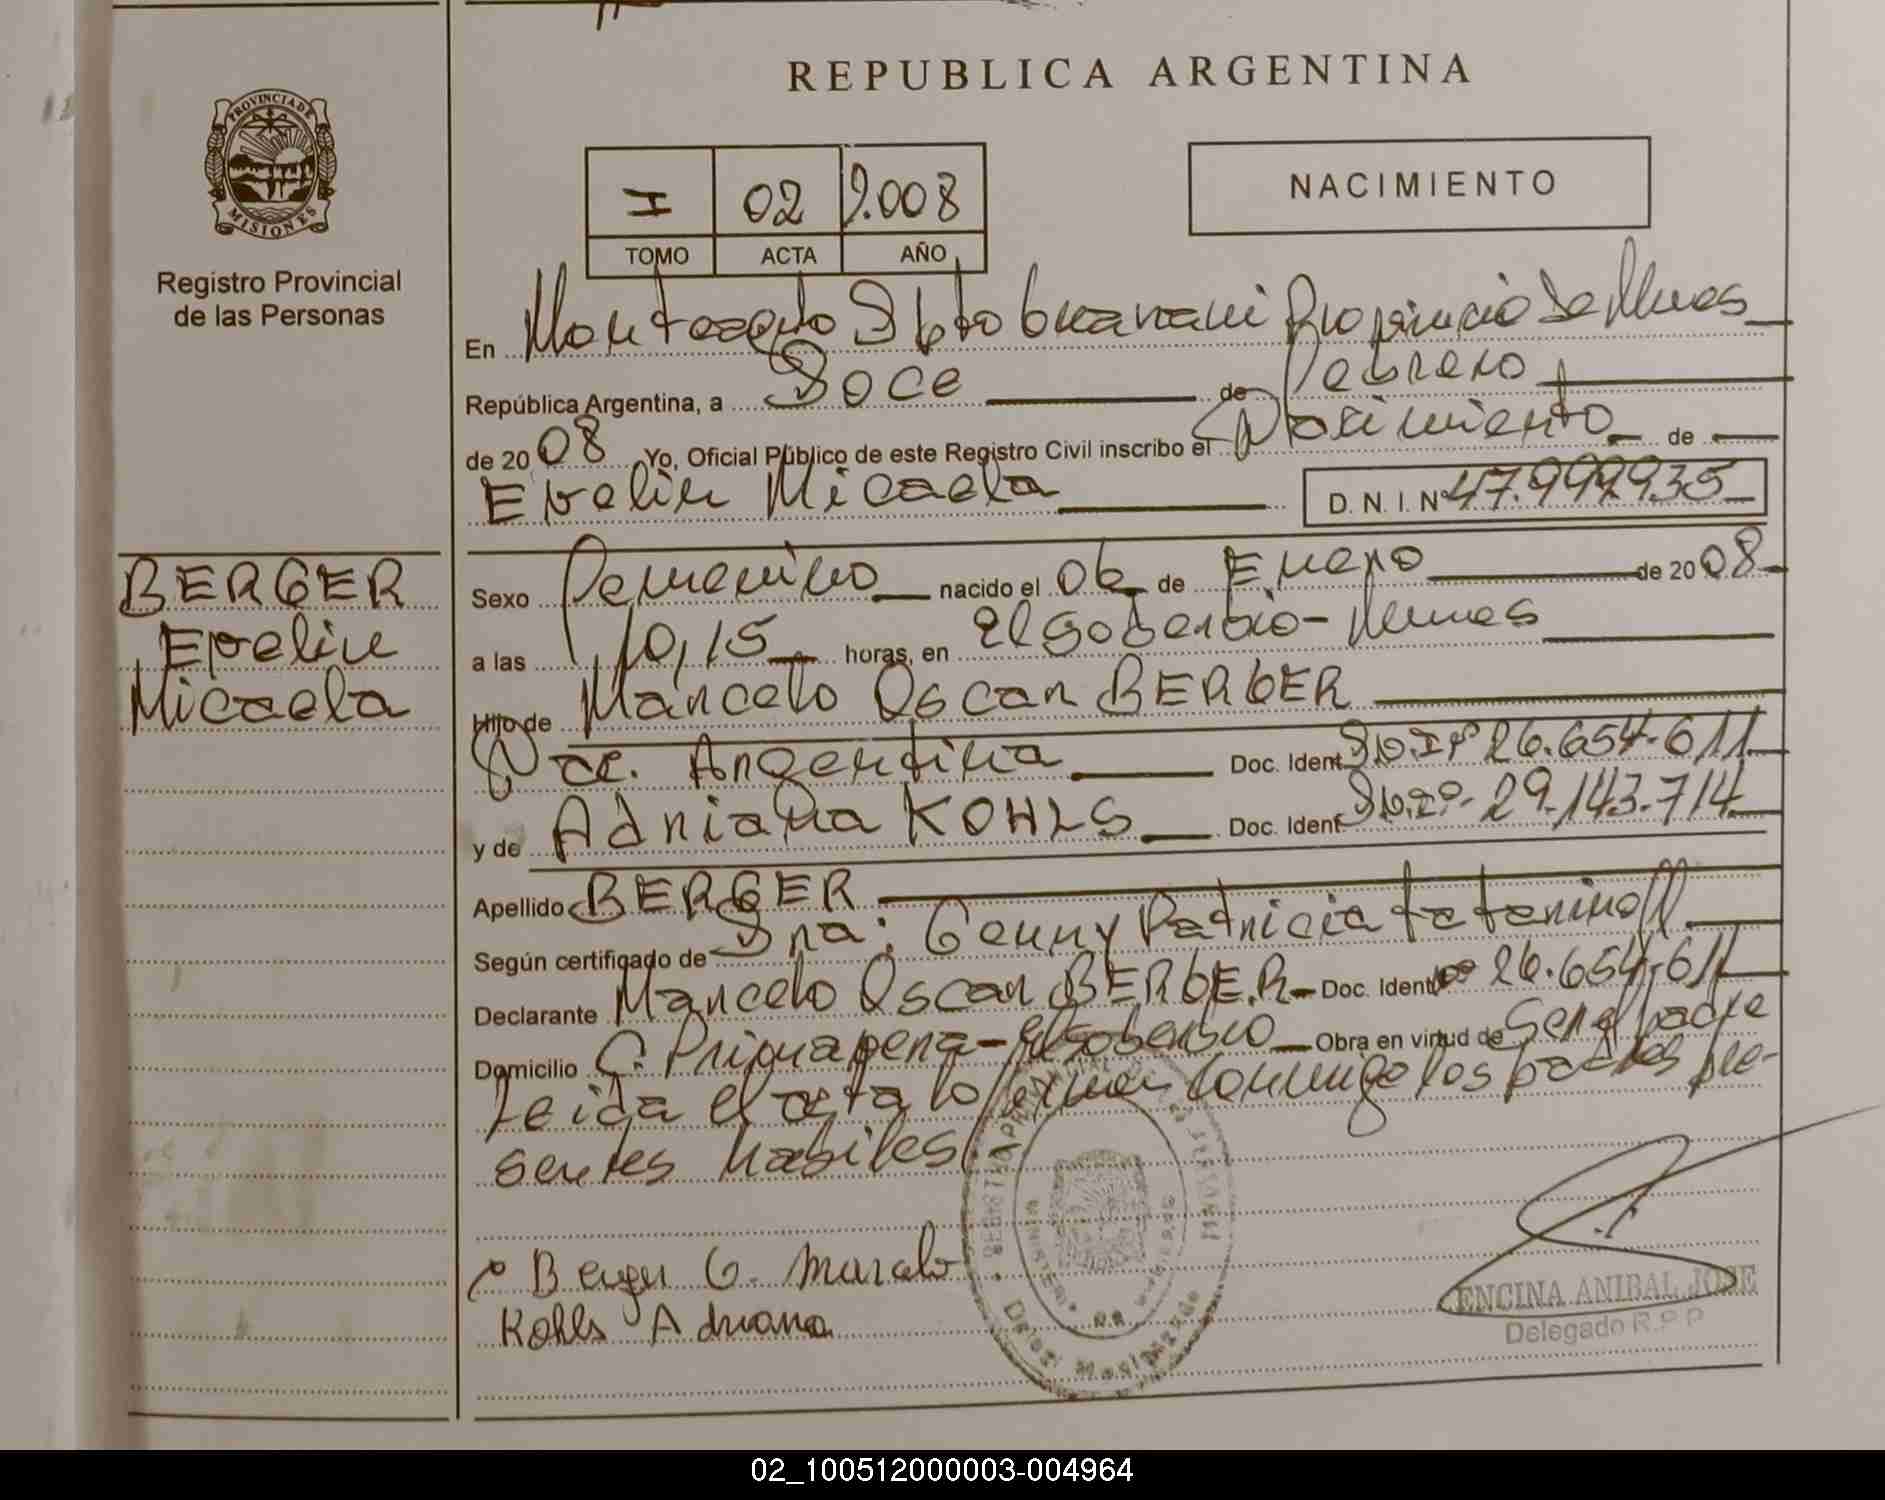 REPUBLICA ARGENTINA
PROVINCIA DE
MISIONES
Registro Provincial
de las Personas
I 02 2.008
TOMO ACTA AÑO
NACIMIENTO
En Monteagudo Dpto Guarani Provincia de Mnes
República Argentina, a Doce de Febrero
de 2008 Yo, Oficial Público de este Registro Civil inscribo el Nacimiento de
Evelin Micaela D. N. I. Nº 47.999.935
BERGER
Evelin
Micaela
Sexo Femenino nacido el 06 de Enero de 2008
a las 10,15 horas, en El Soberbio - Mnes
Hijo de Marcelo Oscar BERGER
Nac. Argentina Doc. Ident. D.N.I Nº 26.654.611
y de Adriana KOHLS Doc. Ident. D.N.I Nº 29.143.714
Apellido BERGER
Según certificado de Dra: Genny Patricia
Declarante Marcelo Oscar BERGER Doc. Ident. Nº 26.654.611
Domicilio C. Primavera - El Soberbio Obra en virtud de Ser el padre
Leida el acta lo firman conmigo los padres pre-
sentes habiles
Berger O. Marcelo
Kohls Adriana
ENCINA ANIBAL JOSE
Delegado R.P.P
02_100512000003-004964